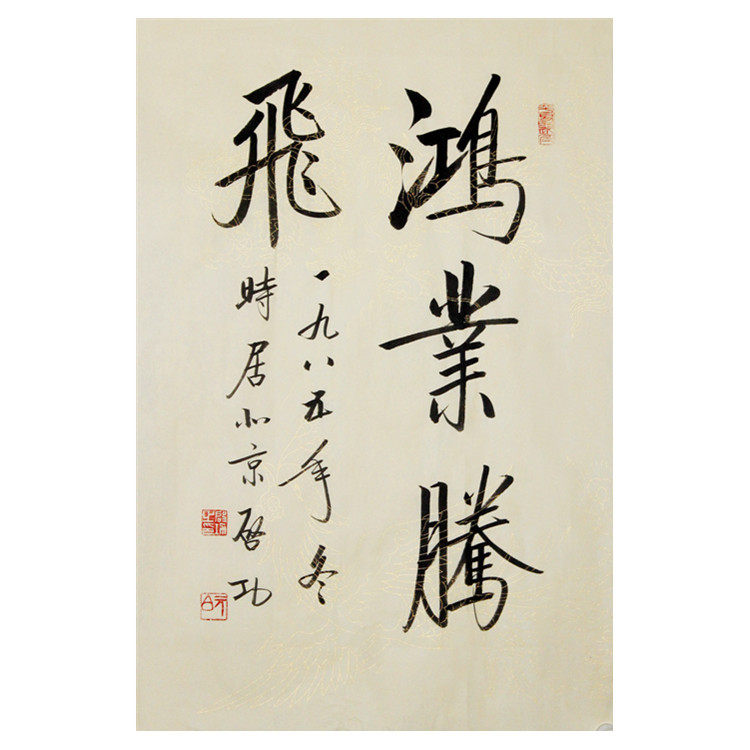 鴻業騰
飛
一九八五年冬
時居北京啓功